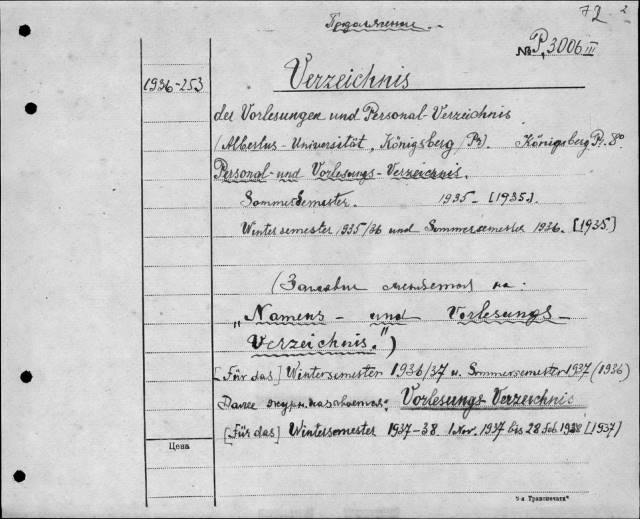 72 2
Продолжение.
№ P, 3006 III
1936-253
Verzeichnis
der Vorlesungen und Personal-Verzeichnis.
(Albertus-Universität, Königsberg /Pr). Königsberg Pr. 8°
Personal-und Vorlesungs-Verzeichnis.
SommerSemester. 1935- [1935.]
Wintersemester 1935/36 und Sommersemester 1936. [1935]
(Заглавие меняется на:
„Namens- und Vorlesungs-
Verzeichnis.")
[Für das] Wintersemester 1936/37 u. Sommersemester 1937 (1936)
Далее журн. называется: Vorlesungs-Verzeichnis
[Für das] Wintersemester 1937-38. 1 Nov. 1937 bis 28 Feb. 1938 [1937]
Цена
9-я „Транспечать"